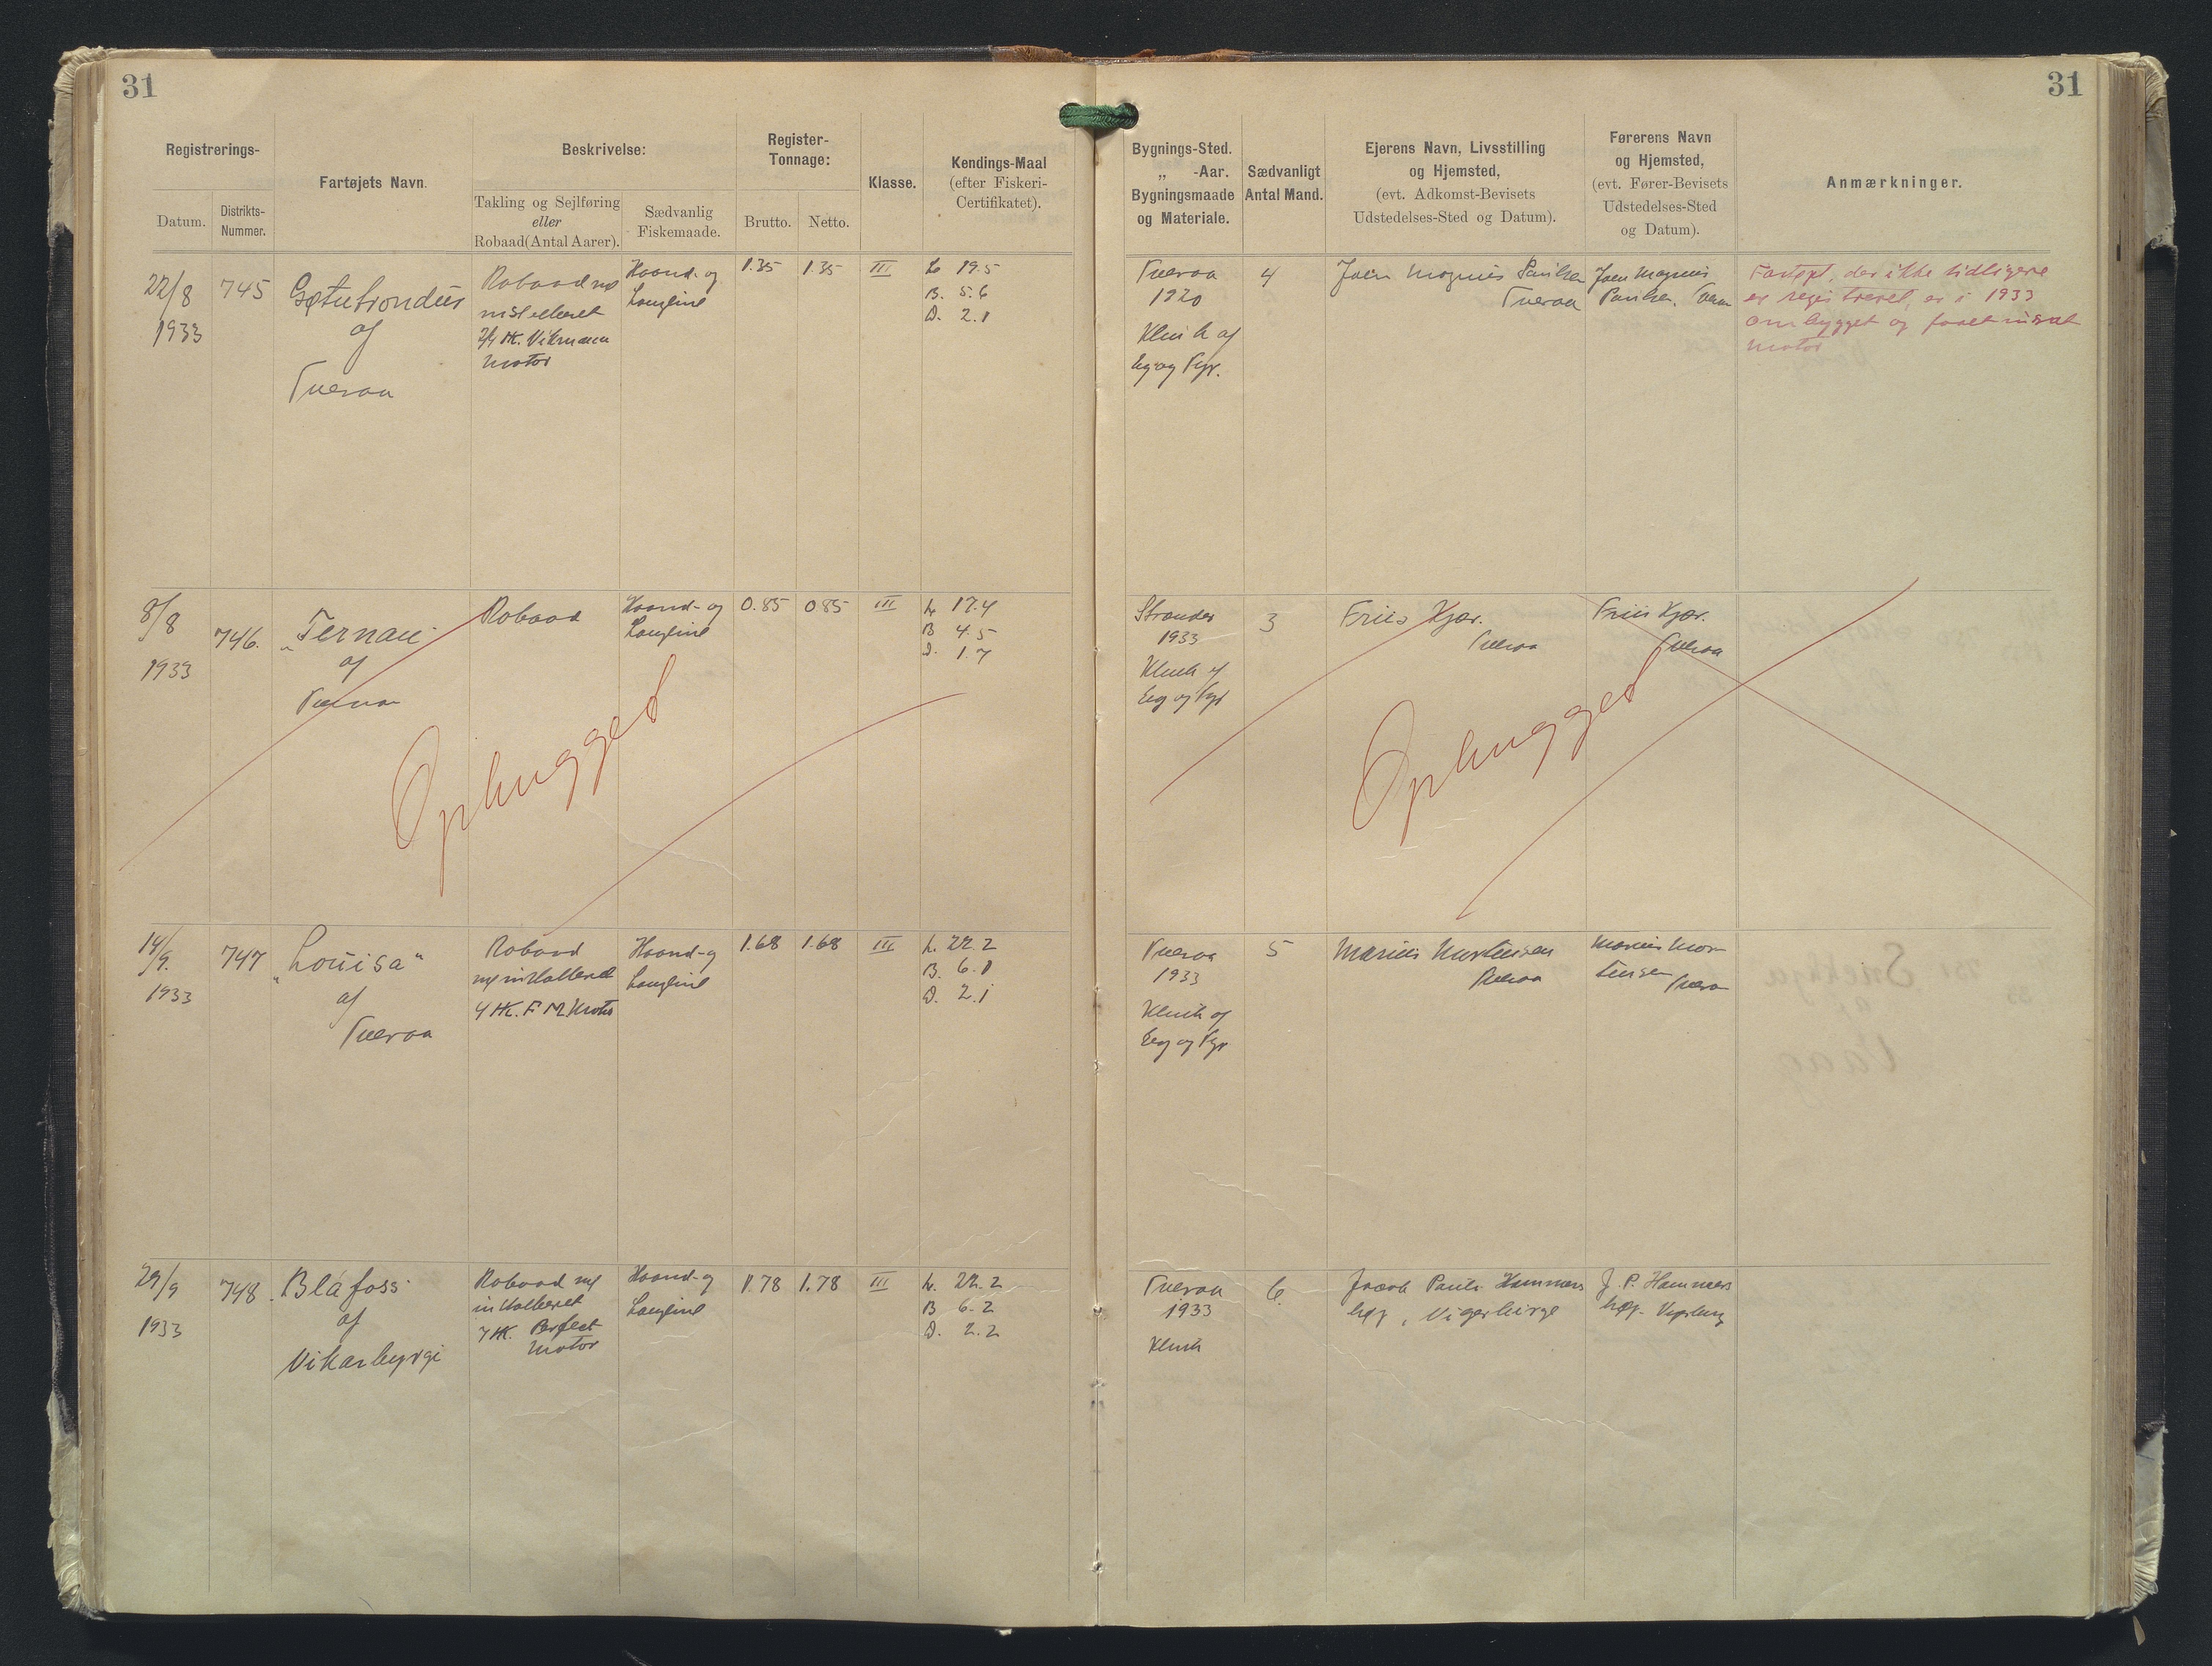 31
31
Registrerings-
Datum.
Distrikts-
Nummer.
Fartøjets Navn.
Beskrivelse:
Takling og Sejlføring
eller
Robaad (Antal Aarer).
Sædvanlig
Fiskemaade.
Register-
Tonnage:
Brutto.
Netto.
Klasse.
Kendings-Maal
(efter Fiskeri-
Certifikatet).
Bygnings-Sted.
„ -Aar.
Bygningsmaade
og Materiale.
Sædvanligt
Antal Mand.
Ejerens Navn, Livsstilling
og Hjemsted,
(evt. Adkomst-Bevisets
Udstedelses-Sted og Datum).
Førerens Navn
og Hjemsted,
(evt. Fører-Bevisets
Udstedelses-Sted
og Datum).
Anmærkninger.
22/8
1933
745
Gøtutrondur
af
Tveraa
Robaad
installeret
HK.
Motor
Haand- og
Langline
1.35
1.35
III
L 19.5
B. 5.6
D. 2.1
Tveraa
1920
Klink af
Eg og Fyr.
4
Joen Magnus Poulsen
Tveraa
Joen Magnus
Poulsen, Tveraa
Fartøjet, der ikke tidligere
er registreret, er i 1933
ombygget og faaet indsat
motor
8/8
1933
746.
"Ternan
af
Tveraa
Robaad
Haand- og
Langline
0.85
0.85
III
L 17.4
B 4.5
D. 1.7
Strender
1933
Klink af
Eg og Fyr
3
Friis Kjær.
Tveraa
Friis Kjær.
Tveraa
Ophugged
Ophugged
14/9.
1933
747
"Louisa"
af
Tveraa
Robaad
m/ installeret
4 HK. F M Motor
Haand- og
Langline
1.68
1.68
III
L. 22.2
B. 6.1
D. 2.1
Tveraa
1933
Klink af
Eg og Fyr
5
Marius Mortensen
Tveraa
Marius Mor-
tensen Tveraa
29/9
1933
748.
Bláfoss
af
Vikarbyrgi
Robaad m/
installeret
7 HK. Perfect
Motor
Haand- og
Langline
1.78
1.78
III
L. 22.2
B 6.2
D. 2.2
Tveraa
1933
Klink
6.
Jacob Pauli Hammers
høj, Vigerbirge
J. P. Hammers
høj.